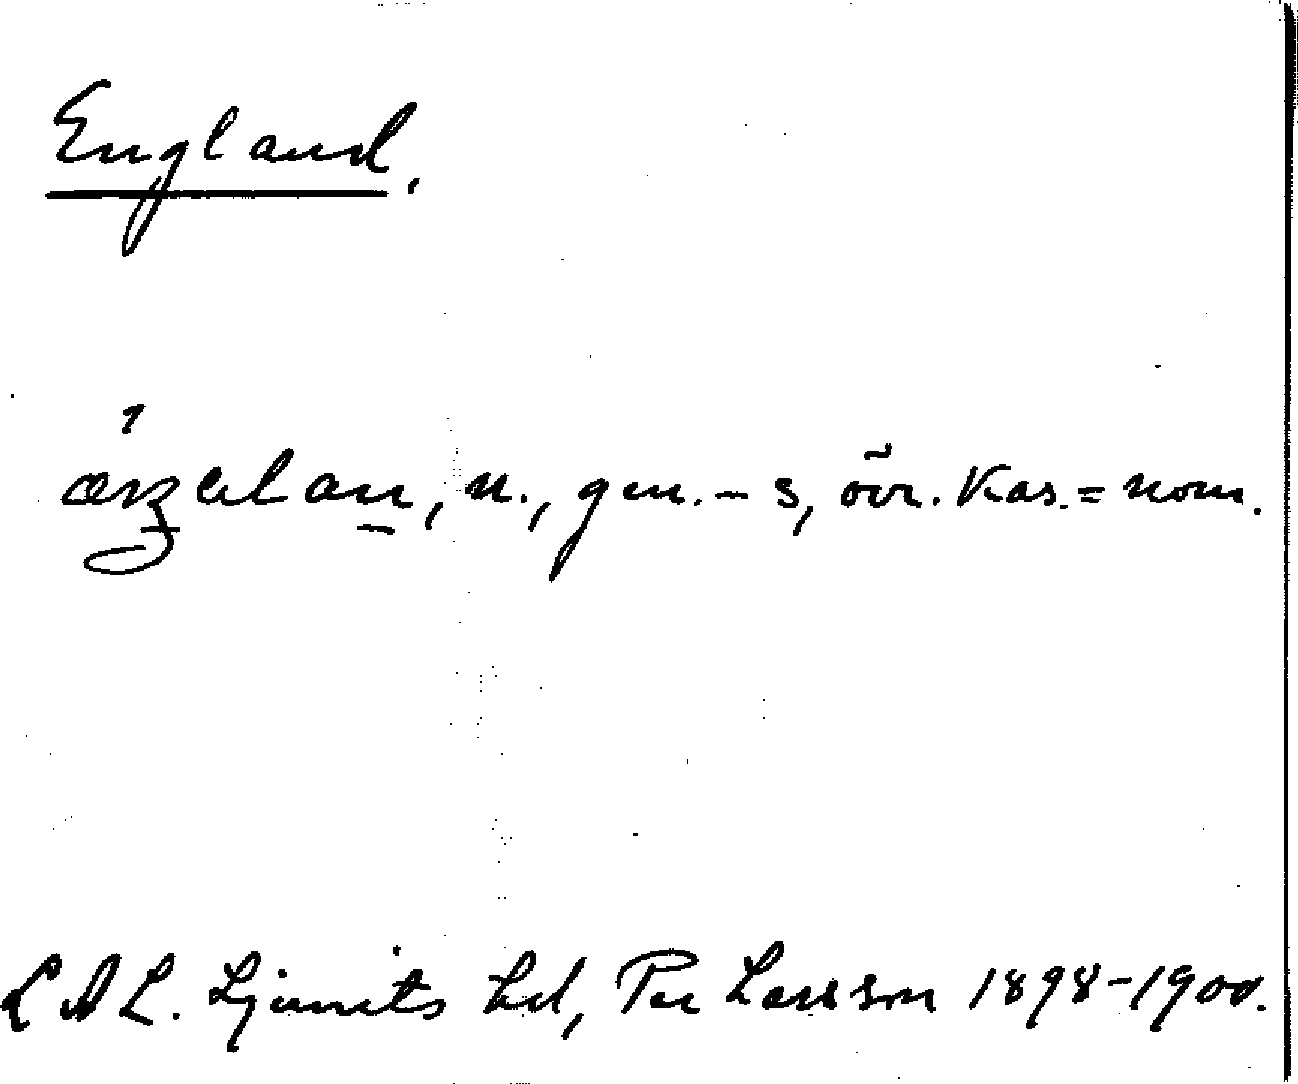 England.
n., gen. -s, övr. Kas. = nom.
L A L. Ljunits hd, Per Larsson 1898-1900.